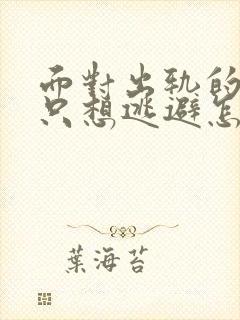 而對出軌的
只想逃避怎
葉海苔